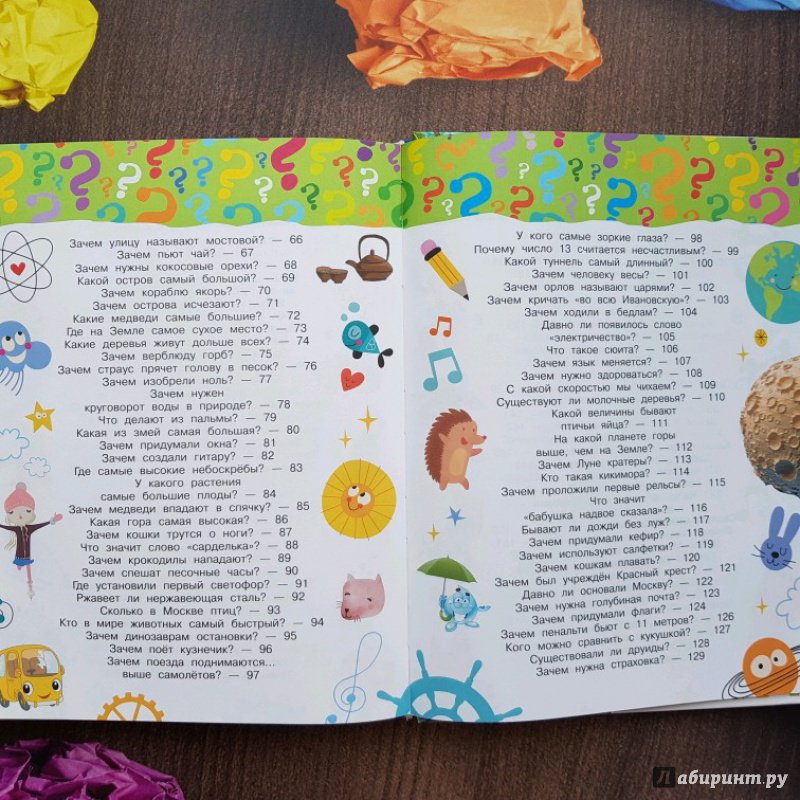 Зачем улицу называют мостовой? — 66
Зачем пьют чай? — 67
Зачем нужны кокосовые орехи? — 68
Какой остров самый большой? — 69
Зачем кораблю якорь? — 70
Зачем острова исчезают? — 71
Какие медведи самые большие? — 72
Где на Земле самое сухое место? — 73
Какие деревья живут дольше всех? — 74
Зачем верблюду горб? — 75
Зачем страус прячет голову в песок? — 76
Зачем изобрели ноль? — 77
Зачем нужен
круговорот воды в природе? — 78
Что делают из пальмы? — 79
Какая из змей самая большая? — 80
Зачем придумали окна? — 81
Зачем создали гитару? — 82
Где самые высокие небоскрёбы? — 83
У какого растения
самые большие плоды? — 84
Зачем медведи впадают в спячку? — 85
Какая гора самая высокая? — 86
Зачем кошки трутся о ноги? — 87
Что значит слово «сарделька»? — 88
Зачем крокодилы нападают? — 89
Зачем спешат песочные часы? — 90
Где установили первый светофор? — 91
Ржавеет ли нержавеющая сталь? — 92
Сколько в Москве птиц? — 93
Кто в мире животных самый быстрый? — 94
Зачем динозаврам остановки? — 95
Зачем поёт кузнечик? — 96
Зачем поезда поднимаются...
выше самолётов? — 97
У кого самые зоркие глаза? — 98
Почему число 13 считается несчастливым? — 99
Какой туннель самый длинный? — 100
Зачем человеку весы? — 101
Зачем орлов называют царями? — 102
Зачем кричать «во всю Ивановскую»? — 103
Зачем ходили в бедлам? — 104
Давно ли появилось слово
«электричество»? — 105
Что такое сюита? — 106
Зачем язык меняется? — 107
Зачем нужно здороваться? — 108
С какой скоростью мы чихаем? — 109
Существуют ли молочные деревья? — 110
Какой величины бывают
птичьи яйца? — 111
На какой планете горы
выше, чем на Земле? — 112
Зачем Луне кратеры? — 113
Кто такая кикимора? — 114
Зачем проложили первые рельсы? — 115
Что значит
«бабушка надвое сказала»? — 116
Бывают ли дожди без луж? — 117
Зачем придумали кефир? — 118
Зачем используют салфетки? — 119
Зачем кошкам плавать? — 120
Зачем был учреждён Красный крест? — 121
Давно ли основали Москву? — 122
Зачем нужна голубиная почта? — 123
Зачем придумали флаги? — 124
Зачем пенальти бьют с 11 метров? — 126
Кого можно сравнить с кукушкой? — 127
Существовали ли друиды? — 128
Зачем нужна страховка? — 129
Лабиринт.ру